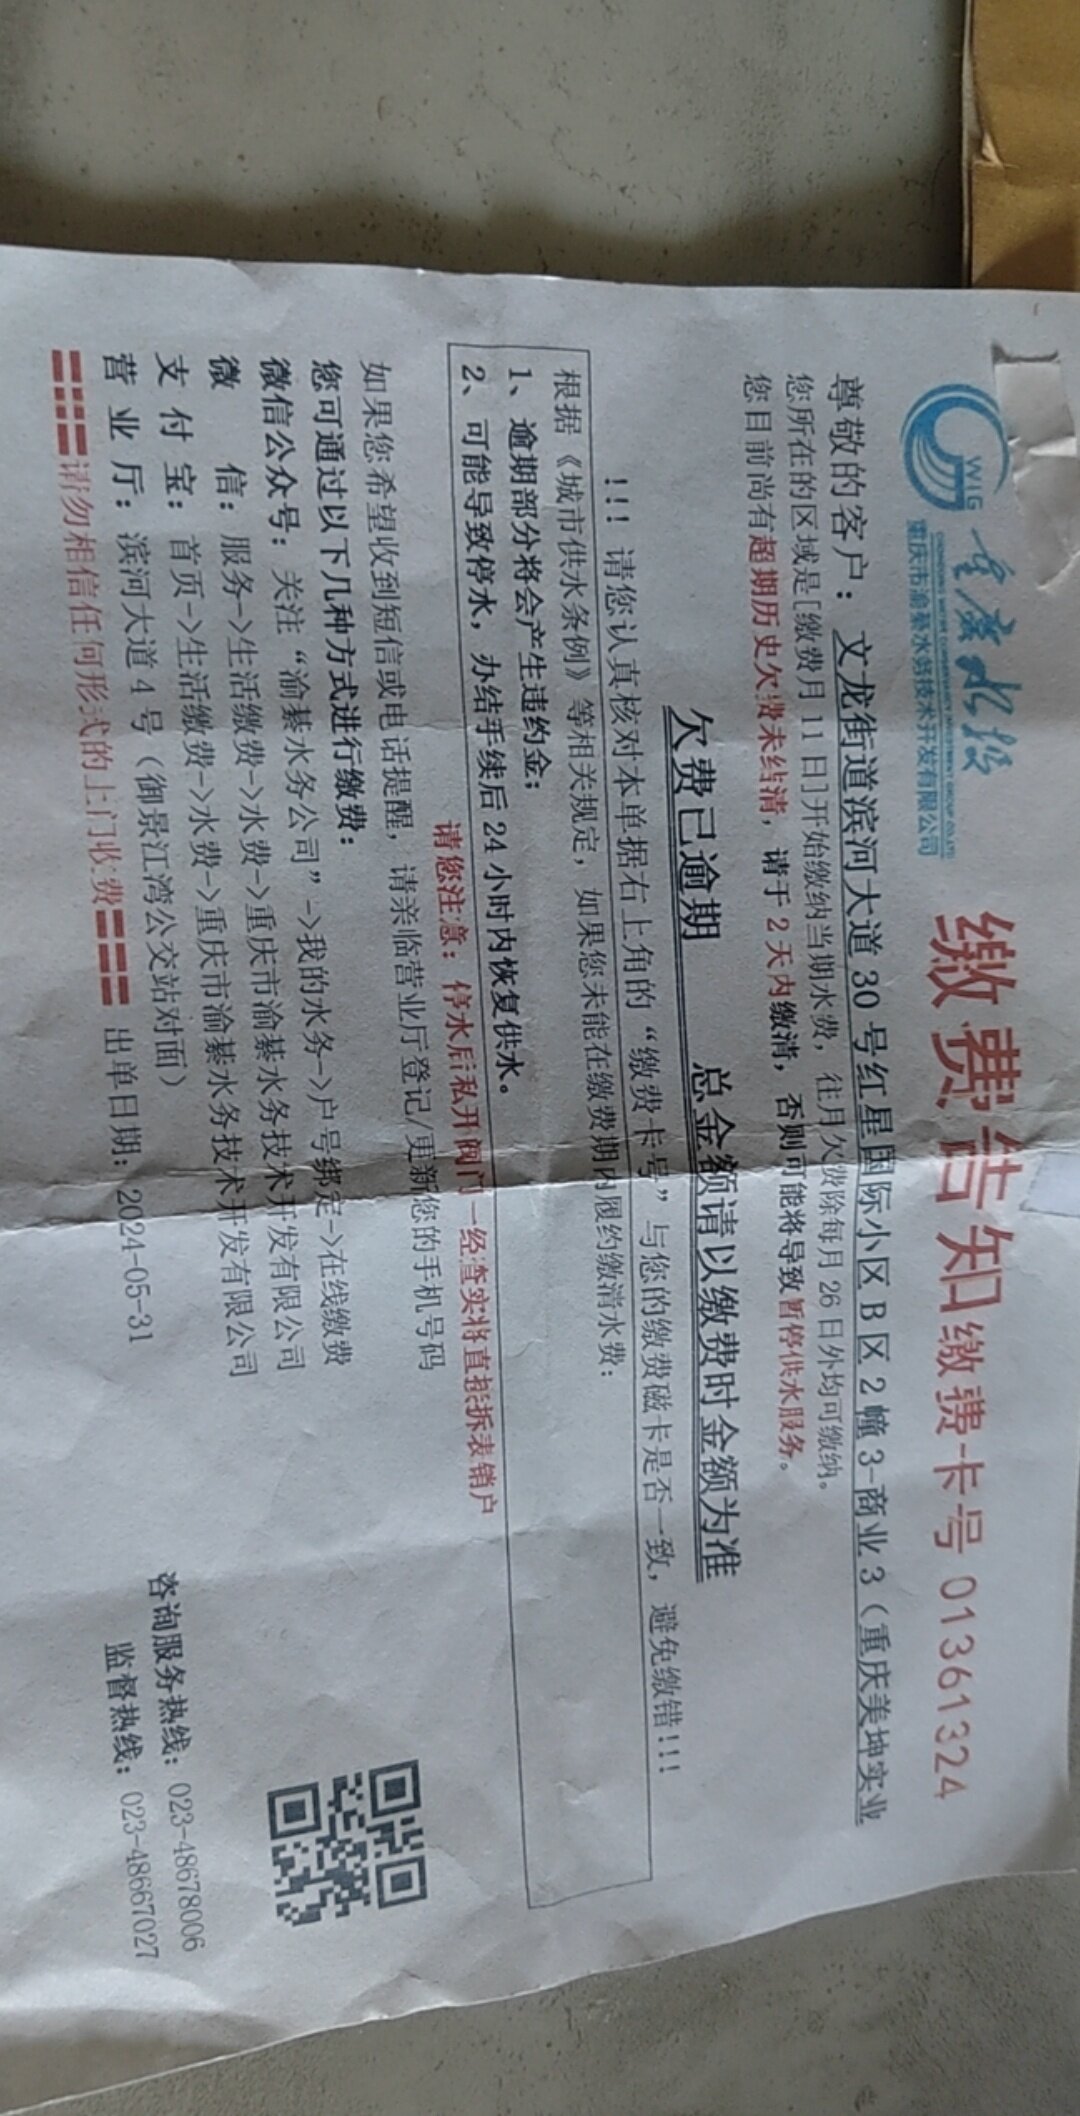 WIG 重庆水投
CHONGQING WATER CONSERVANCY INVESTMENT GROUP CO.,LTD
重庆市渝綦水务技术开发有限公司
缴费告知 缴费卡号 01361324
尊敬的客户：文龙街道滨河大道 30 号红星国际小区 B 区 2 幢 3-商业 3（重庆美坤实业
您所在的区域是[缴费月 11 日]开始缴纳当期水费，往月欠费除每月 26 日外均可缴纳。
您目前尚有超期历史欠费未结清，请于 2 天内缴清，否则可能将导致暂停供水服务。
欠费已逾期 总金额请以缴费时金额为准
!!! 请您认真核对本单据右上角的“缴费卡号”与您的缴费磁卡是否一致，避免缴错!!!
根据《城市供水条例》等相关规定，如果您未能在缴费期内履约缴清水费：
1、逾期部分将会产生违约金；
2、可能导致停水，办结手续后 24 小时内恢复供水。
请您注意：停水后私开阀门一经查实将直接拆表销户
如果您希望收到短信或电话提醒，请亲临营业厅登记/更新您的手机号码
您可通过以下几种方式进行缴费：
微信公众号：关注“渝綦水务公司”->我的水务->户号绑定->在线缴费
微 信：服务->生活缴费->水费->重庆市渝綦水务技术开发有限公司
支 付 宝：首页->生活缴费->水费->重庆市渝綦水务技术开发有限公司
营 业 厅：滨河大道 4 号（御景江湾公交站对面）
咨询服务热线：023-48678006
〓〓〓请勿相信任何形式的上门收费〓〓〓 出单日期：2024-05-31
监督热线：023-48667027